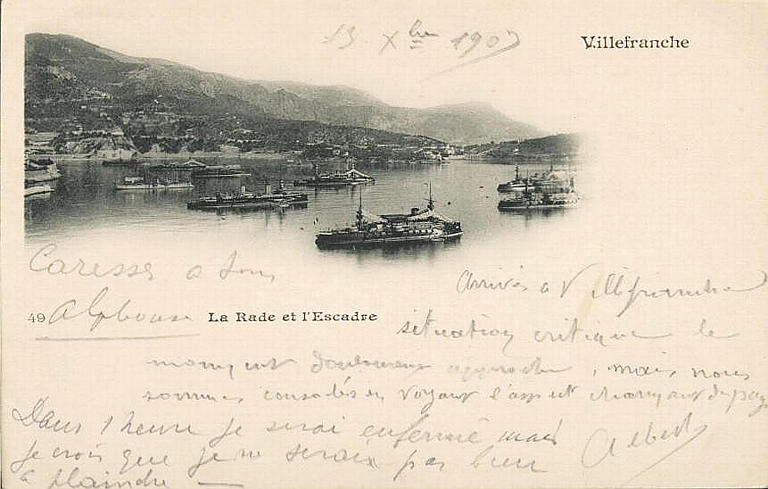 13 Xbre 1902
Villefranche
Caresses a tous
49 Alphonse La Rade et l'Escadre
Arrivés a Villefranche
situation critique le
moment douloureux approche, mais nous
sommes consolés en voyant l'aspect charmant du pays
Dans 1 heure je serai enfermé mais
je crois que je ne serai pas bien
à plaindre —
Albert